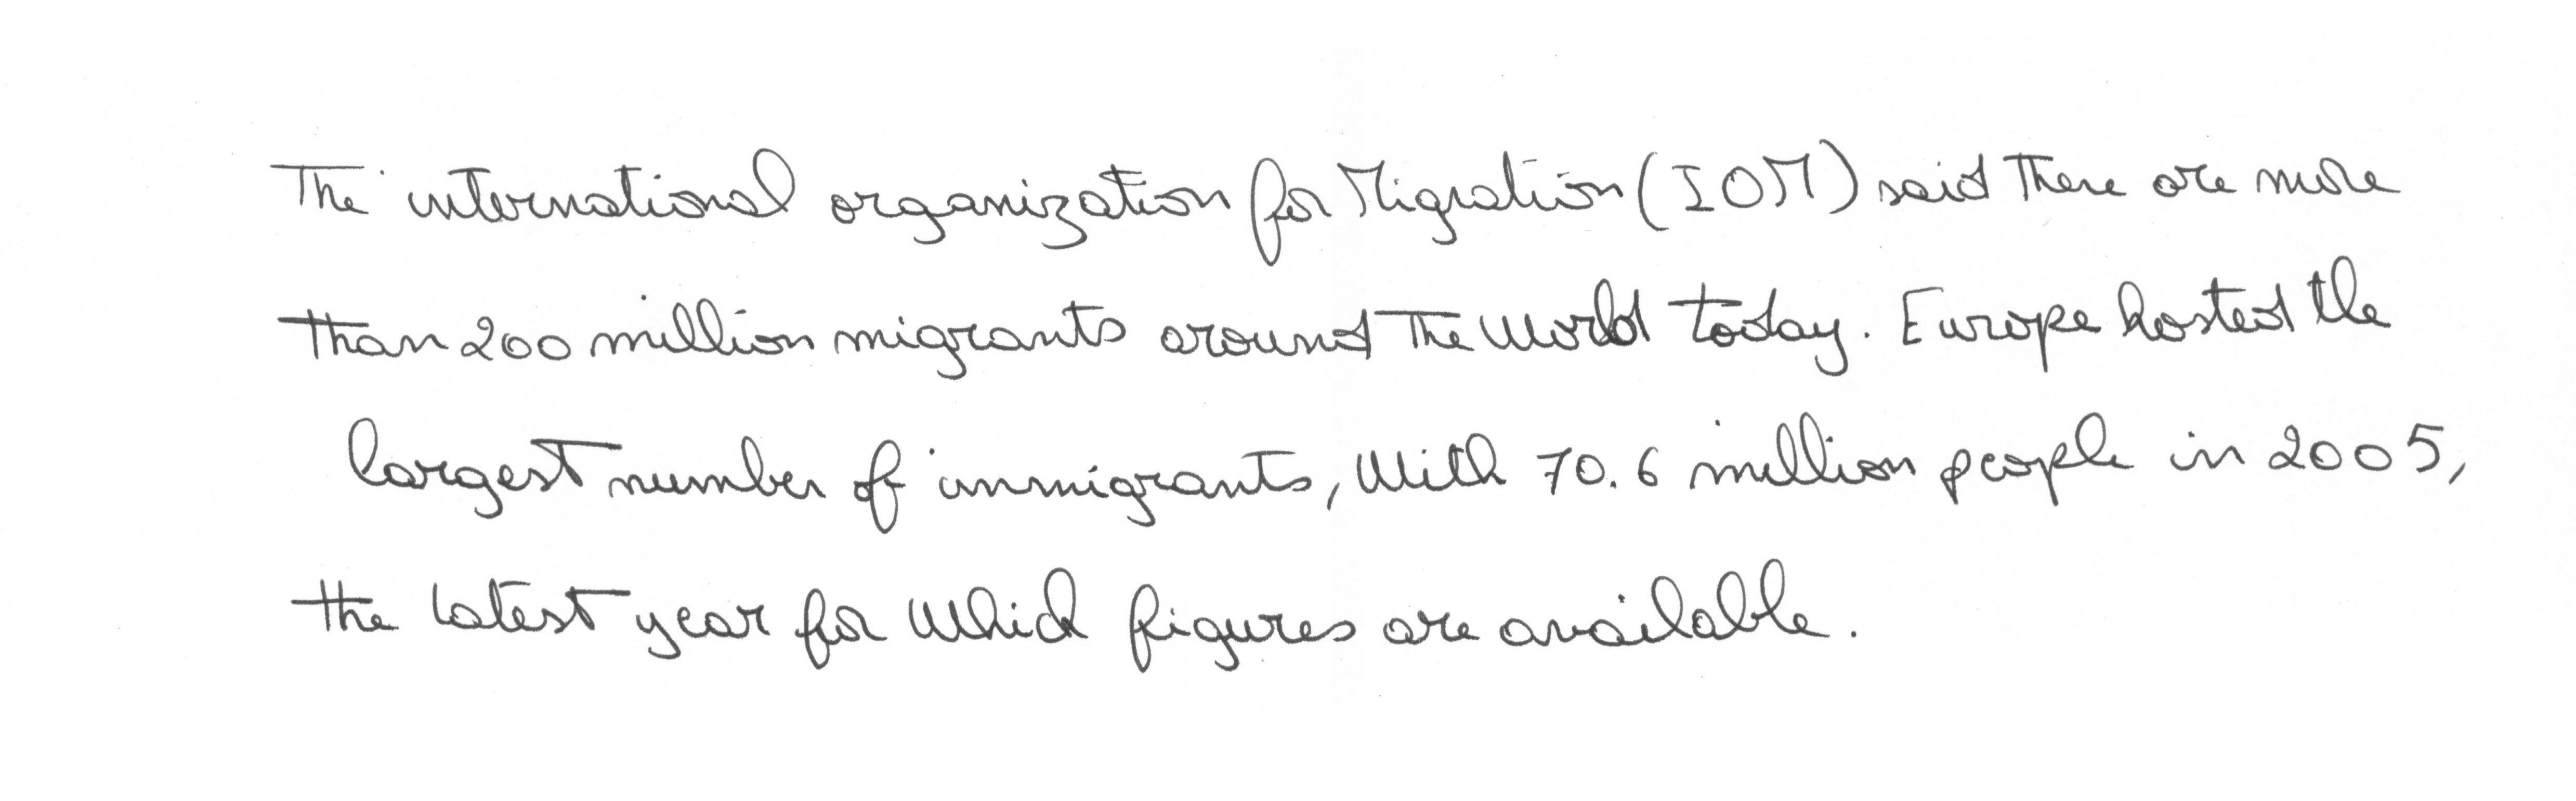 The international organization for Migration (IOM) said there are more
than 200 million migrants around the world today. Europe hosted the
largest number of immigrants, with 70.6 million people in 2005,
the latest year for which figures are available.